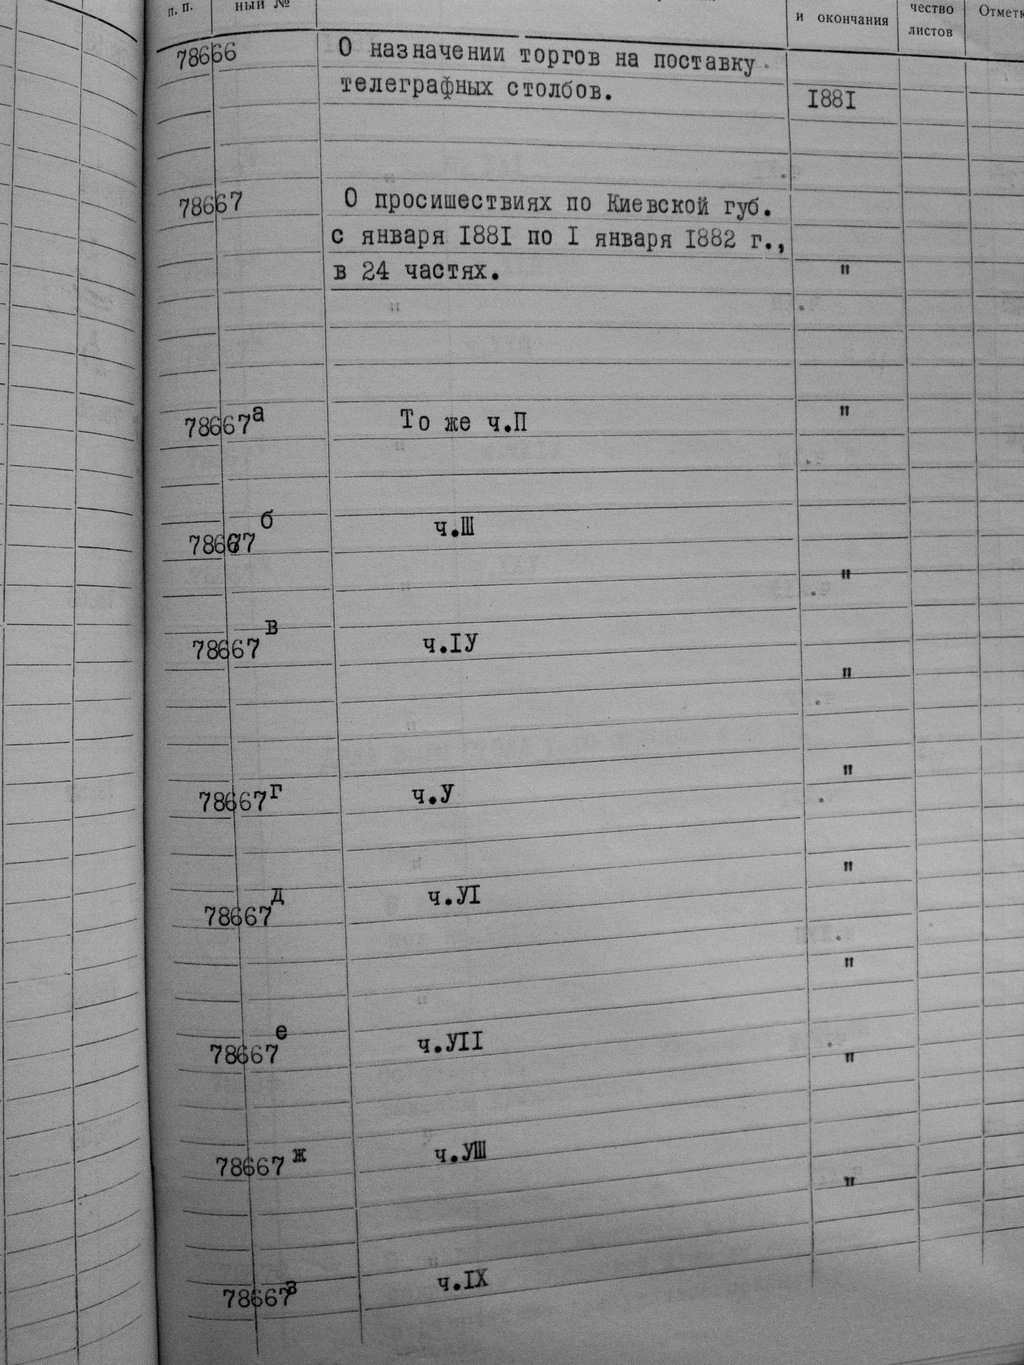 п. п.
ный №
и окончания
чество
листов
Отметк
78666 О назначении торгов на поставку
телеграфных столбов.
I88I
78667 О просишествиях по Киевской губ.
с января I88I по I января I882 г.,
в 24 частях. "
78667а То же ч.П "
78667б ч.Ш
"
78667в ч.IУ
"
"
78667г ч.У
"
78667д ч.УI
"
78667е ч.УII
"
78667ж ч.УШ
"
78667з ч.IX